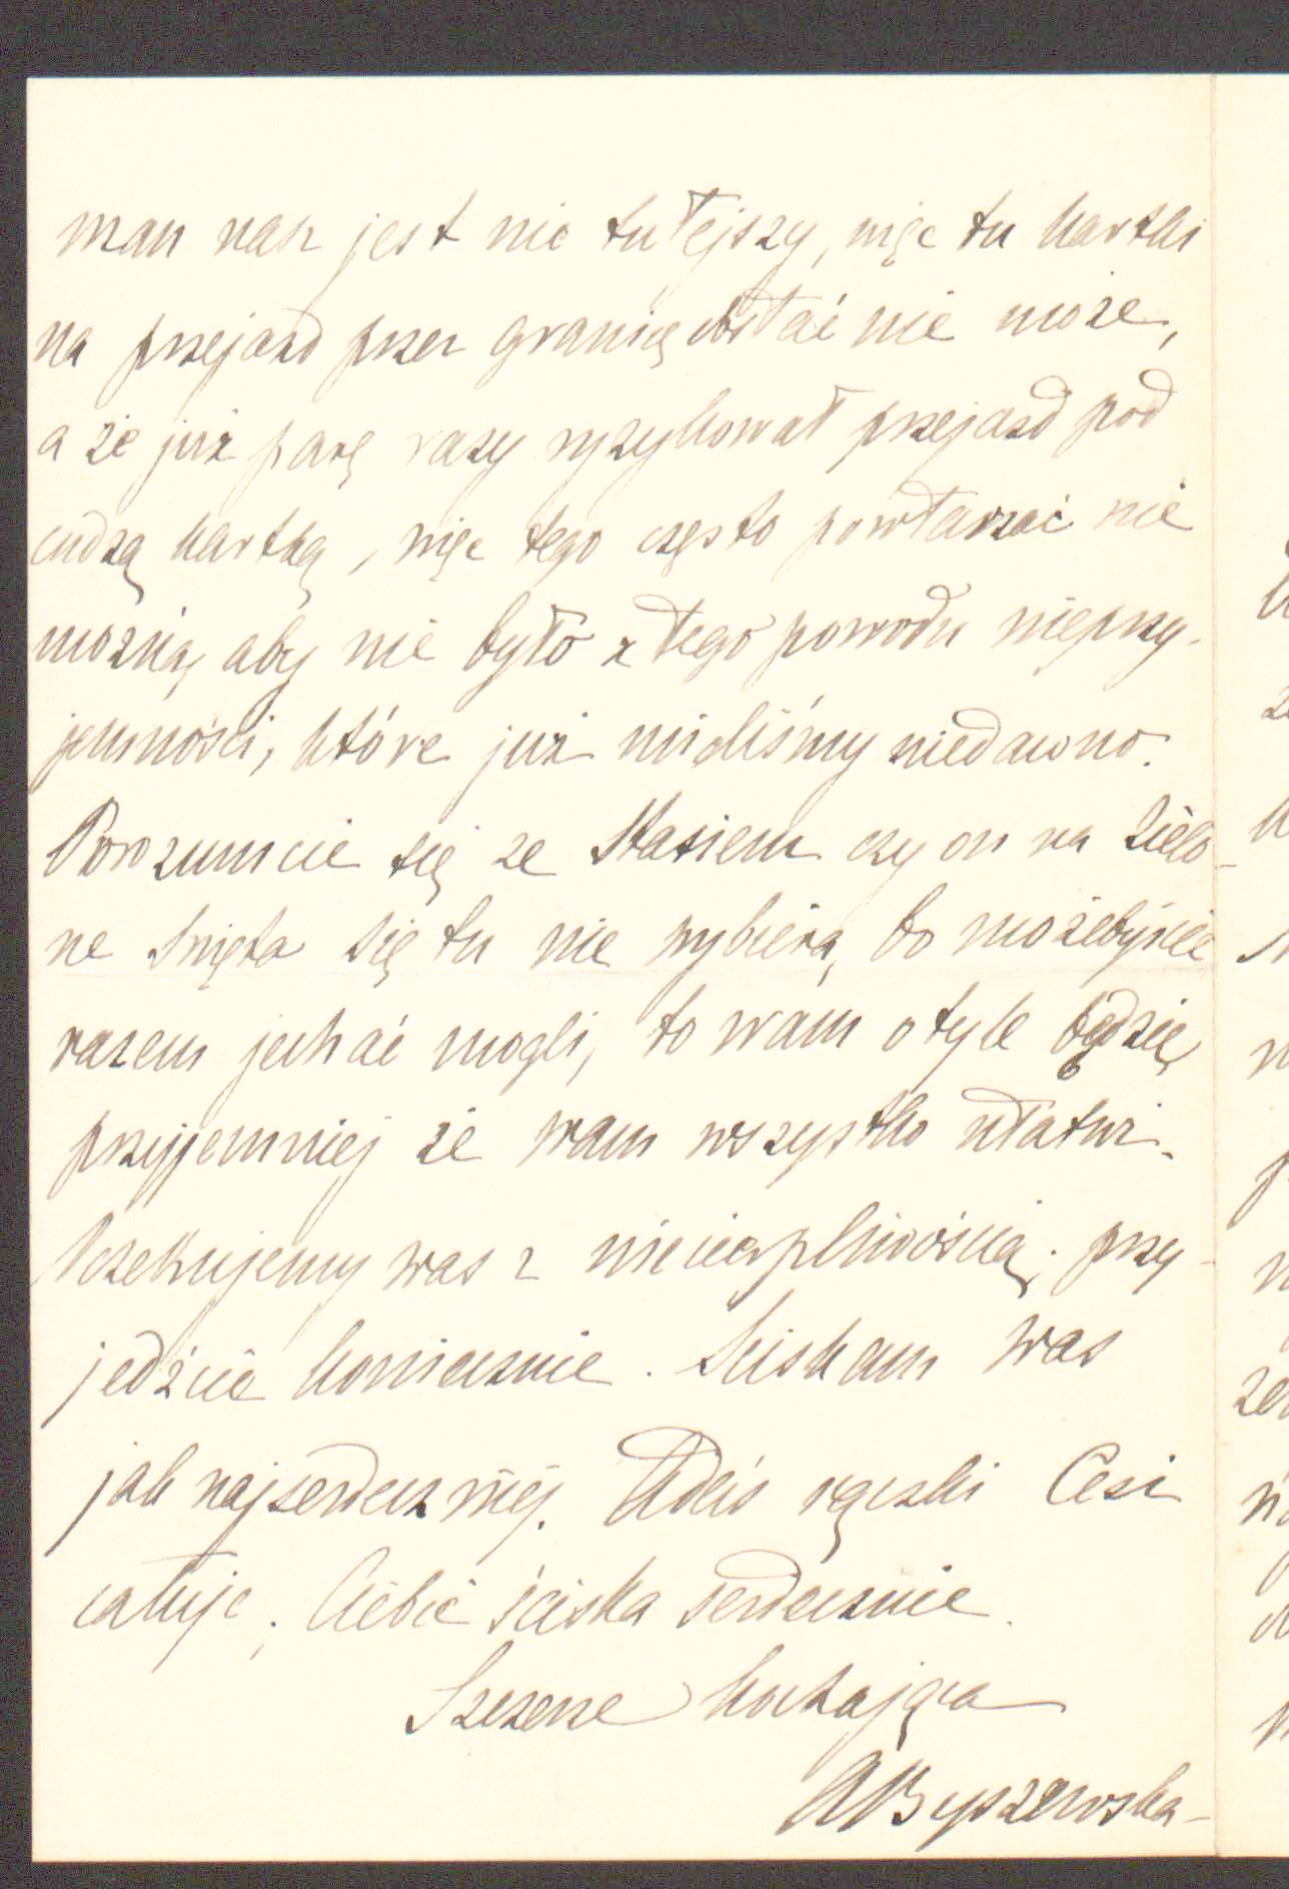 man nasz jest nie tutejszy, więc tu kartki
na przejazd przez granicę dostać nie może,
a że już parę razy ryzykował przejazd pod
cudzą kartką, więc tego często powtarzać nie
można, aby nie było z tego powodu nieprzy-
jemności, które już mieliśmy niedawno.
Porozumcie się ze Stasiem czy on na Zielo-
ne Święta się tu nie wybiera, bo możebyście
razem jechać mogli, to wam o tyle będzie
przyjemniej że wam wszystko ułatwi.
Oczekujemy was z niecierpliwością, przy-
jedźcie koniecznie. Ściskam was
jak najserdeczniej. Adaś rączki Cesi
całuje, Ciebie ściska serdecznie.
Szczerze kochająca
AByszewska